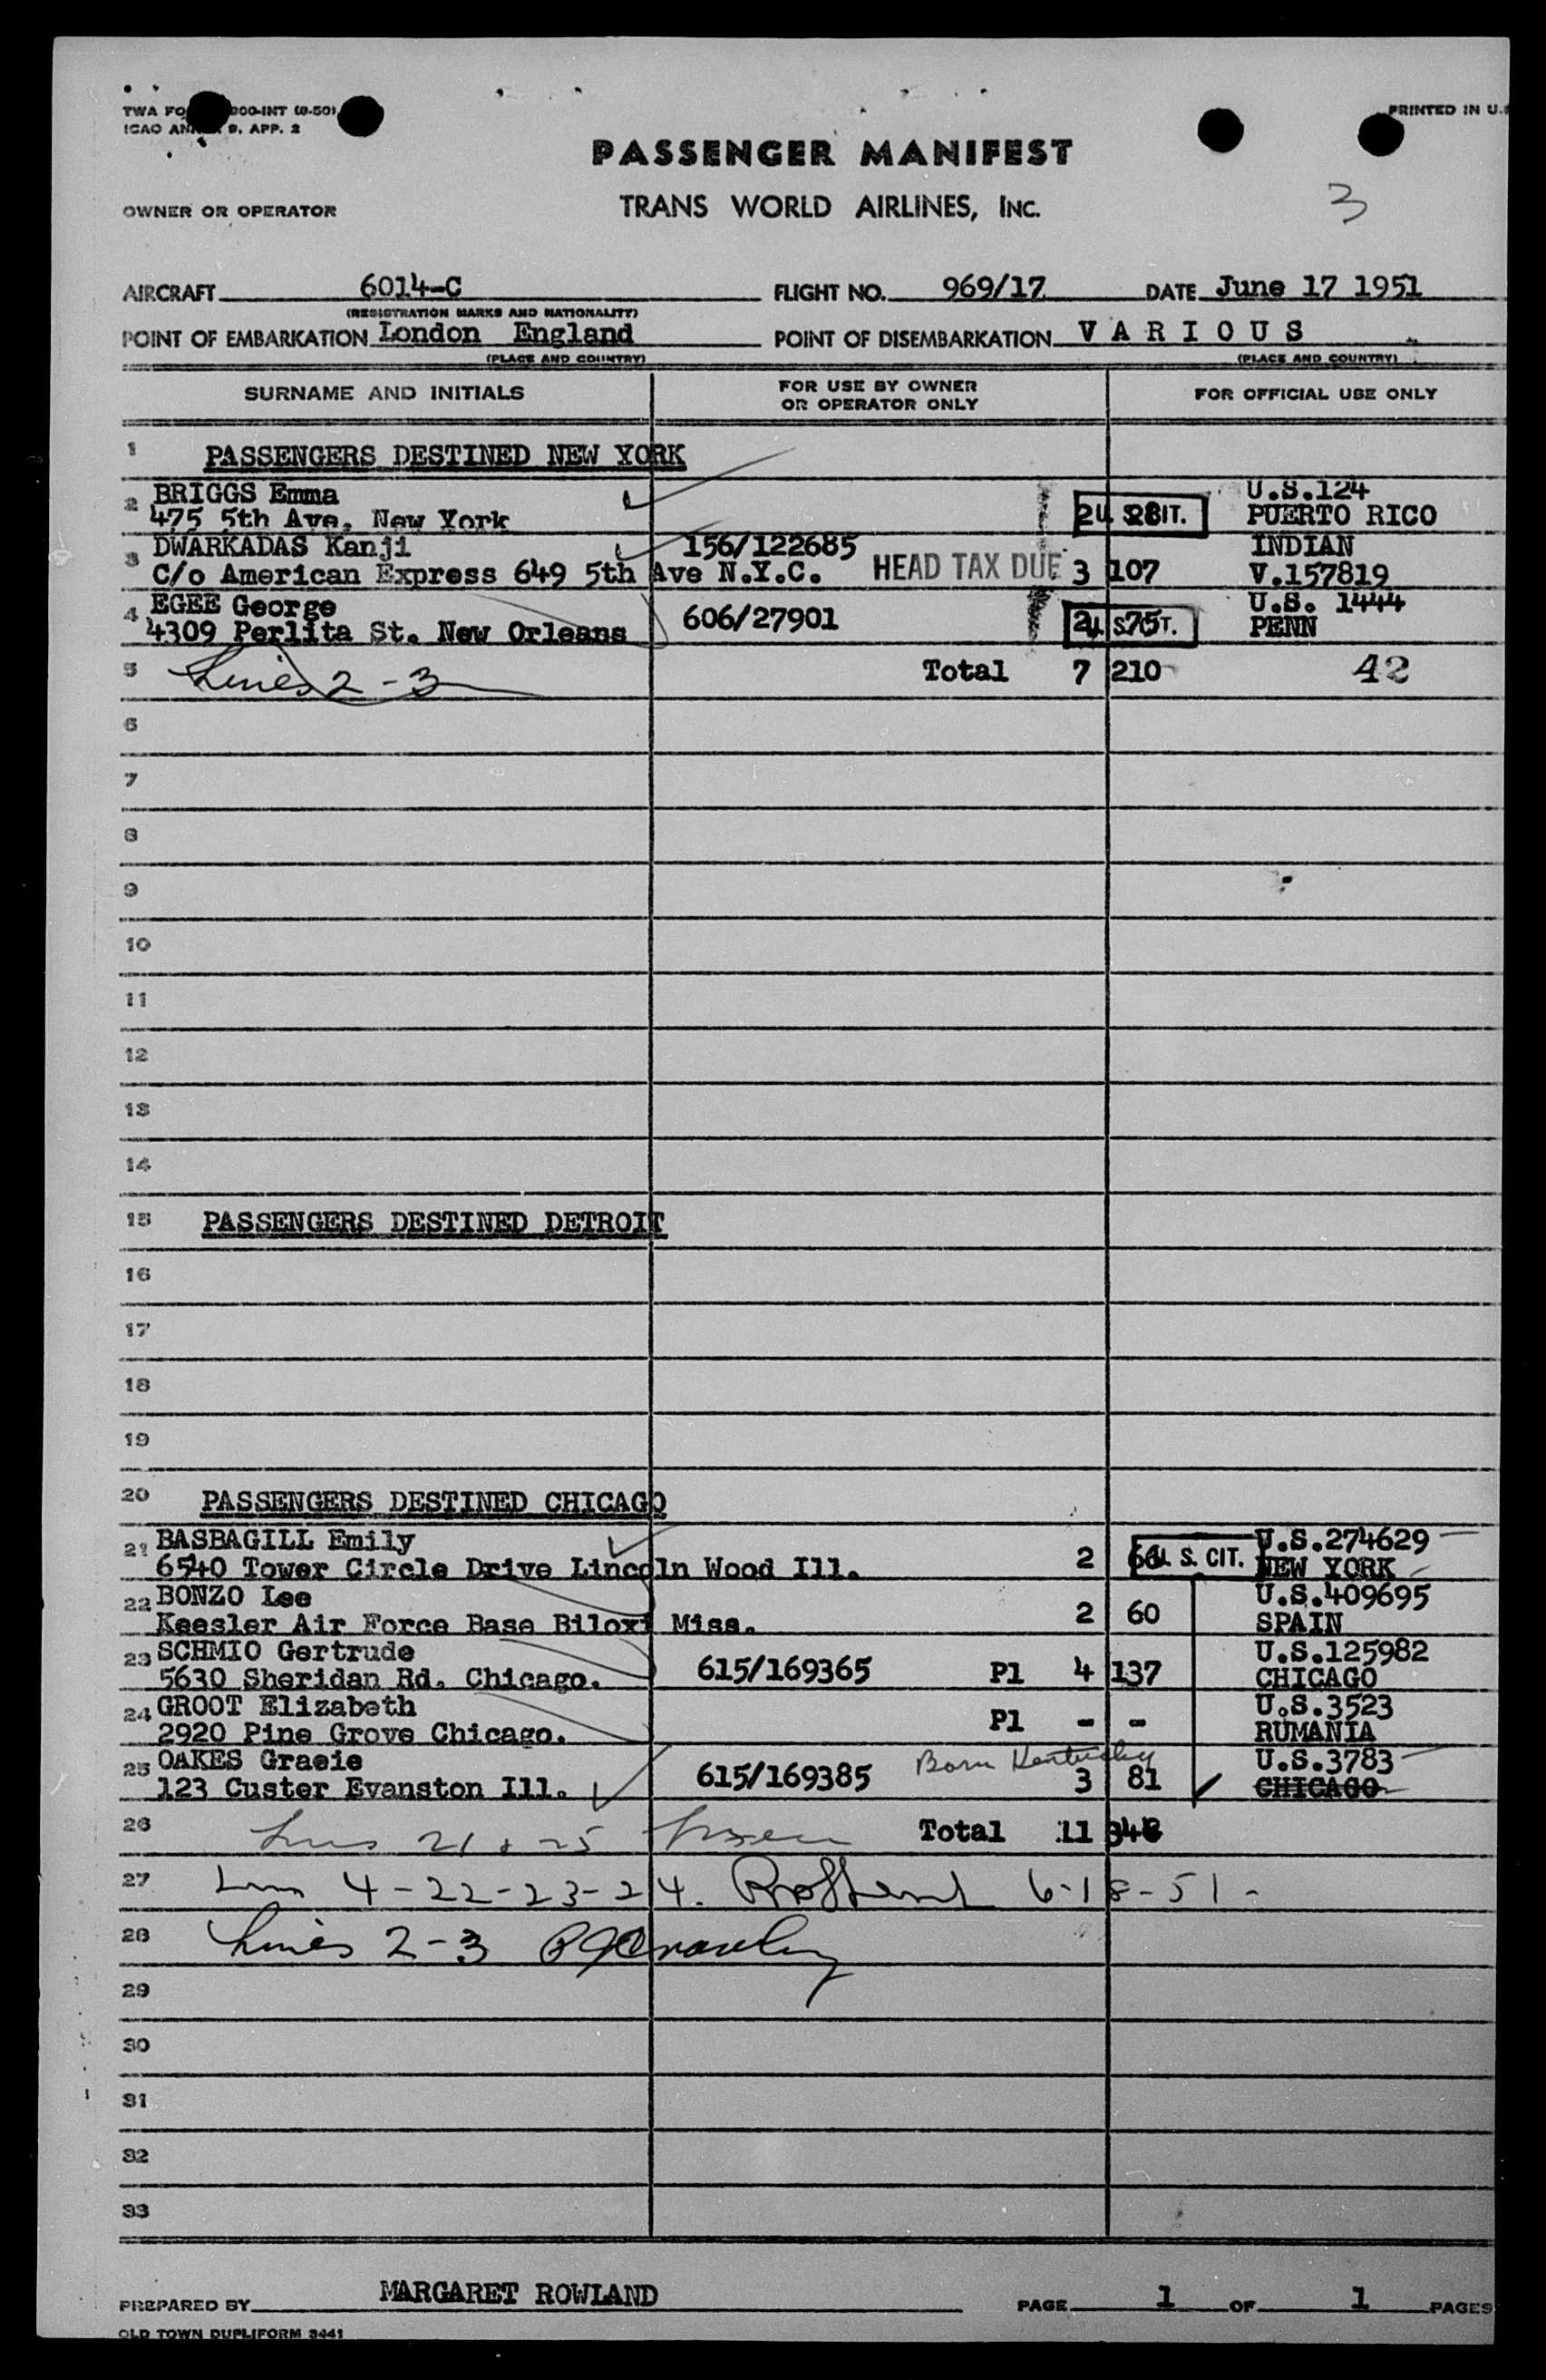 PRINTED IN U.
ICAO ANNEX 9, APP. 2
PASSENGER MANIFEST
OWNER OR OPERATOR TRANS WORLD AIRLINES, INC. 3
AIRCRAFT 6014-C FLIGHT NO. 969/17 DATE June 17 1951
(REGISTRATION MARKS AND NATIONALITY)
POINT OF EMBARKATION London England POINT OF DISEMBARKATION V A R I O U S
(PLACE AND COUNTRY) (PLACE AND COUNTRY)
SURNAME AND INITIALS FOR USE BY OWNER OR OPERATOR ONLY FOR OFFICIAL USE ONLY
1 PASSENGERS DESTINED NEW YORK
2 BRIGGS Emma U.S.124
475 5th Ave. New York 2 28 U.S. CIT. PUERTO RICO
3 DWARKADAS Kanji 156/122685 INDIAN
C/o American Express 649 5th Ave N.Y.C. HEAD TAX DUE 3 107 V.157819
4 EGEE George 606/27901 U.S. 1444
4309 Perlita St. New Orleans 2 75 PENN
5 Lines 2-3 Total 7 210 42
6
7
8
9
10
11
12
13
14
15 PASSENGERS DESTINED DETROIT
16
17
18
19
20 PASSENGERS DESTINED CHICAGO
21 BASBAGILL Emily U.S.274629
6540 Tower Circle Drive Lincoln Wood Ill. 2 U. S. CIT. NEW YORK
22 BONZO Lee U.S.409695
Keesler Air Force Base Biloxi Miss. 2 60 SPAIN
23 SCHMIO Gertrude U.S.125982
5630 Sheridan Rd. Chicago. 615/169365 Pl 4 137 CHICAGO
24 GROOT Elizabeth U.S.3523
2920 Pine Grove Chicago. Pl - - RUMANIA
25 OAKES Graeie Born Kentucky U.S.3783
123 Custer Evanston Ill. 615/169385 3 81 CHICAGO
26 21 & 25 Total 11
27 4-22-23-24. 6-18-51-
28 Lines 2-3
29
30
31
32
33
PREPARED BY MARGARET ROWLAND PAGE 1 OF 1 PAGES
OLD TOWN DUPLIFORM 3441